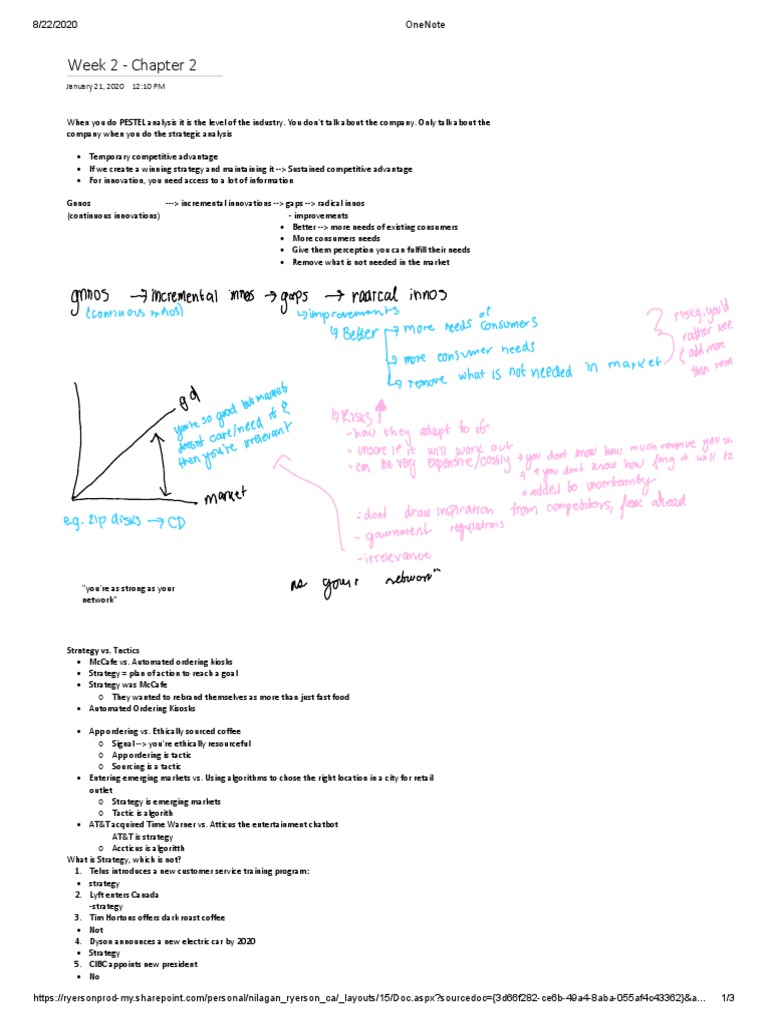 8/22/2020 OneNote
Week 2 - Chapter 2
January 21, 2020 12:10 PM
When you do PESTEL analysis it is the level of the industry. You don't talk about the company. Only talk about the
company when you do the strategic analysis
• Temporary competitive advantage
• If we create a winning strategy and maintaining it --> Sustained competitive advantage
• For innovation, you need access to a lot of information
Gnnos ---> incremental innovations --> gaps --> radical innos
(continuous innovations) - improvements
• Better --> more needs of existing consumers
• More consumers needs
• Give them perception you can fulfill their needs
• Remove what is not needed in the market
gnnos → incremental innos → gaps → radical innos
(continuous innos) ↳ improvements
↳ Better → more needs of consumers
→ more consumer needs
↳ remove what is not needed in market
risk, you'd
rather see
add more
then rem
gd
you're so good but market
doesnt care/need it &
then you're irrelevant
market
e.g. zip disks → CD
↳ Risks
- how they adapt to it
• unsure if it will work out
• can be very expensive/costly → you dont know how much revenue
→ you dont know how long it will t
• added to uncertainty
: dont draw inspiration from competitors, look ahead
- government regulations
- irrelevance
"you're as strong as your
network"
as your network"
Strategy vs. Tactics
• McCafe vs. Automated ordering kiosks
• Strategy = plan of action to reach a goal
• Strategy was McCafe
○ They wanted to rebrand themselves as more than just fast food
• Automated Ordering Kisosks
• App ordering vs. Ethically sourced coffee
○ Signal --> you're ethically resourceful
○ App ordering is tactic
○ Sourcing is a tactic
• Entering emerging markets vs. Using algorithms to chose the right location in a city for retail
outlet
○ Strategy is emerging markets
○ Tactic is algorith
• AT&T acquired Time Warner vs. Atticus the entertainment chatbot
AT&T is strategy
○ Accticus is algoritth
What is Strategy, which is not?
1. Telus introduces a new customer service training program:
• strategy
2. Lyft enters Canada
-strategy
3. Tim Hortons offers dark roast coffee
• Not
4. Dyson announces a new electric car by 2020
• Strategy
5. CIBC appoints new president
• No
https://ryersonprod-my.sharepoint.com/personal/nilagan_ryerson_ca/_layouts/15/Doc.aspx?sourcedoc={3d66f282-ce6b-49a4-8aba-055af4c43362}&a… 1/3